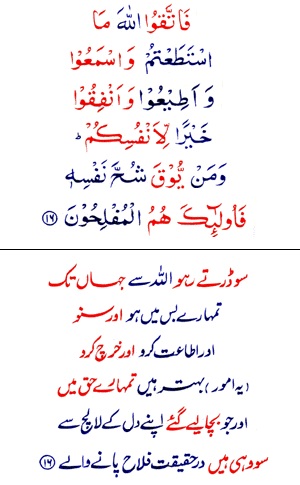 فَاتَّقُوا اللّٰهَ مَا
اسْتَطَعْتُمْ وَاسْمَعُوْا
وَاَطِيْعُوْا وَاَنْفِقُوْا
خَيْرًا لِّاَنْفُسِكُمْ ؕ
وَمَنْ يُّوْقَ شُحَّ نَفْسِهٖ
فَاُولٰٓئِكَ هُمُ الْمُفْلِحُوْنَ ۝۱۶
سو ڈرتے رہو اللہ سے جہاں تک
تمہارے بس میں ہو اور سنو
اور اطاعت کرو اور خرچ کرو
(یہ امور) بہتر ہیں تمہارے حق میں
اور جو بچا لیے گئے اپنے دل کے لالچ سے
سو وہی ہیں درحقیقت فلاح پانے والے ۝۱۶